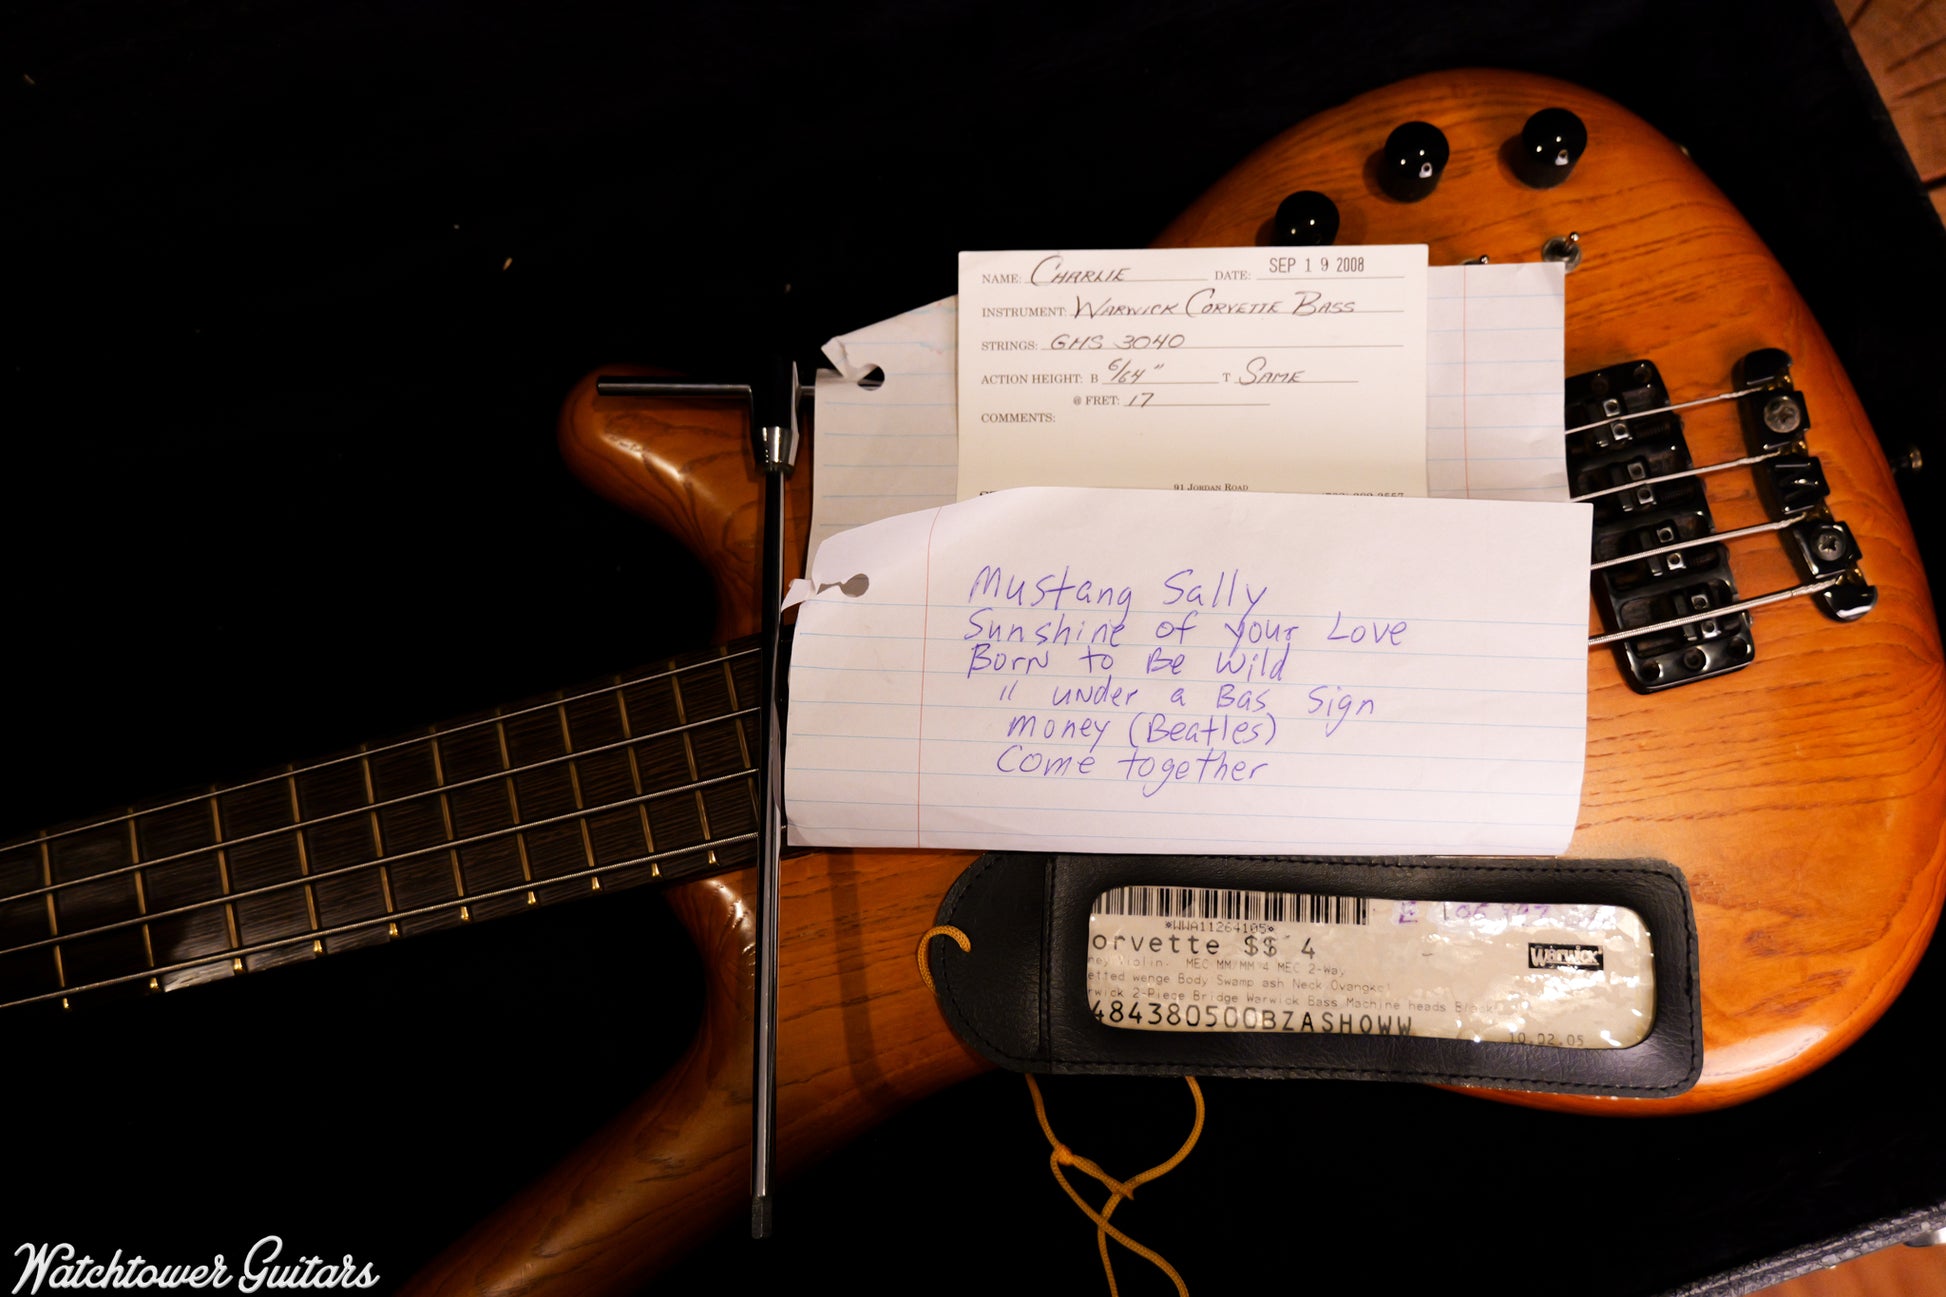 NAME: CHARLIE DATE: SEP 19 2008
INSTRUMENT: WARWICK CORVETTE BASS
STRINGS: GHS 3040
ACTION HEIGHT: B 6/64" T SAME
@ FRET: 17
COMMENTS:
91 JORDAN ROAD
Mustang Sally
Sunshine of your Love
Born to Be Wild
" under a Bas Sign
Money (Beatles)
Come together
*WWA11264105*
orvette $$ 4
ney Violin. MEC MM/MM 4 MEC 2-Way,
etted wenge Body Swamp ash Neck Ovangkol
rwick 2-Piece Bridge Warwick Bass Machine heads Black
484380500BZASHOWW
Warwick
10.02.05
Watchtower Guitars